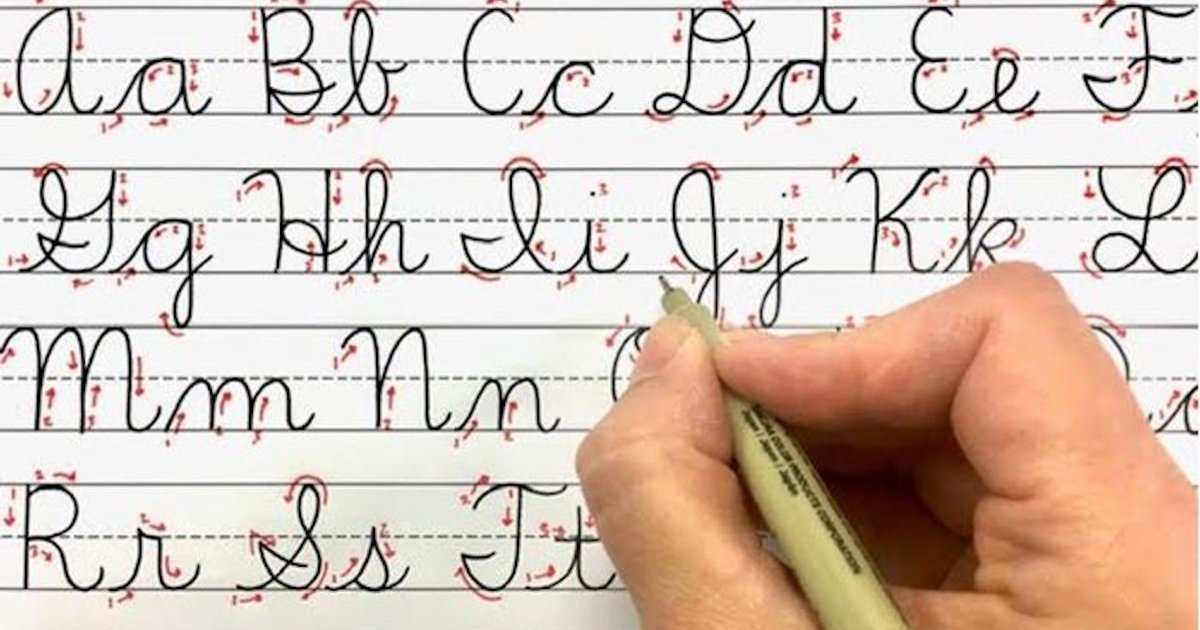 Aa Bb Cc Dd Ee F
Gg Hh Ii Jj Kk L
Mm Nn
Rr Ss Tt